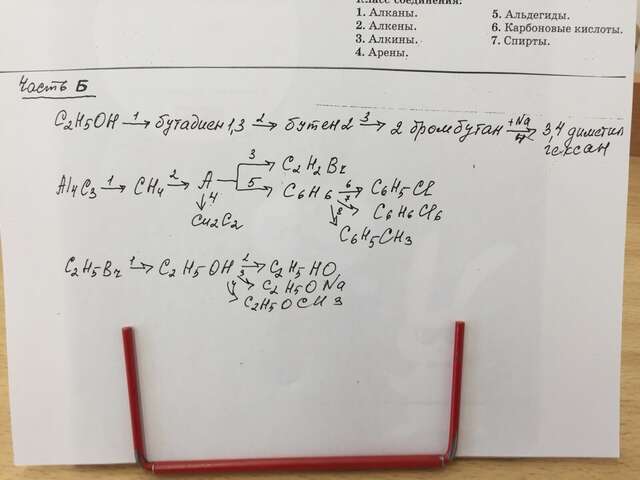 Класс соединения:
1. Алканы.
2. Алкены.
3. Алкины.
4. Арены.
5. Альдегиды.
6. Карбоновые кислоты.
7. Спирты.
Часть Б
C2H5OH 1→ бутадиен 1,3 2→ бутен 2 3→ 2 бромбутан +Na 4→ 3,4 диметил
гексан
3→ C2H2Br
Al4C3 1→ CH4 2→ A 5→ C6H6 6→ C6H5Cl
4 7 C6H6Cl6
Cu2C2 8 C6H5CH3
C2H5Br 1→ C2H5OH 2→ C2H5HO,
3 C2H5ONa
4 C2H5OCH3